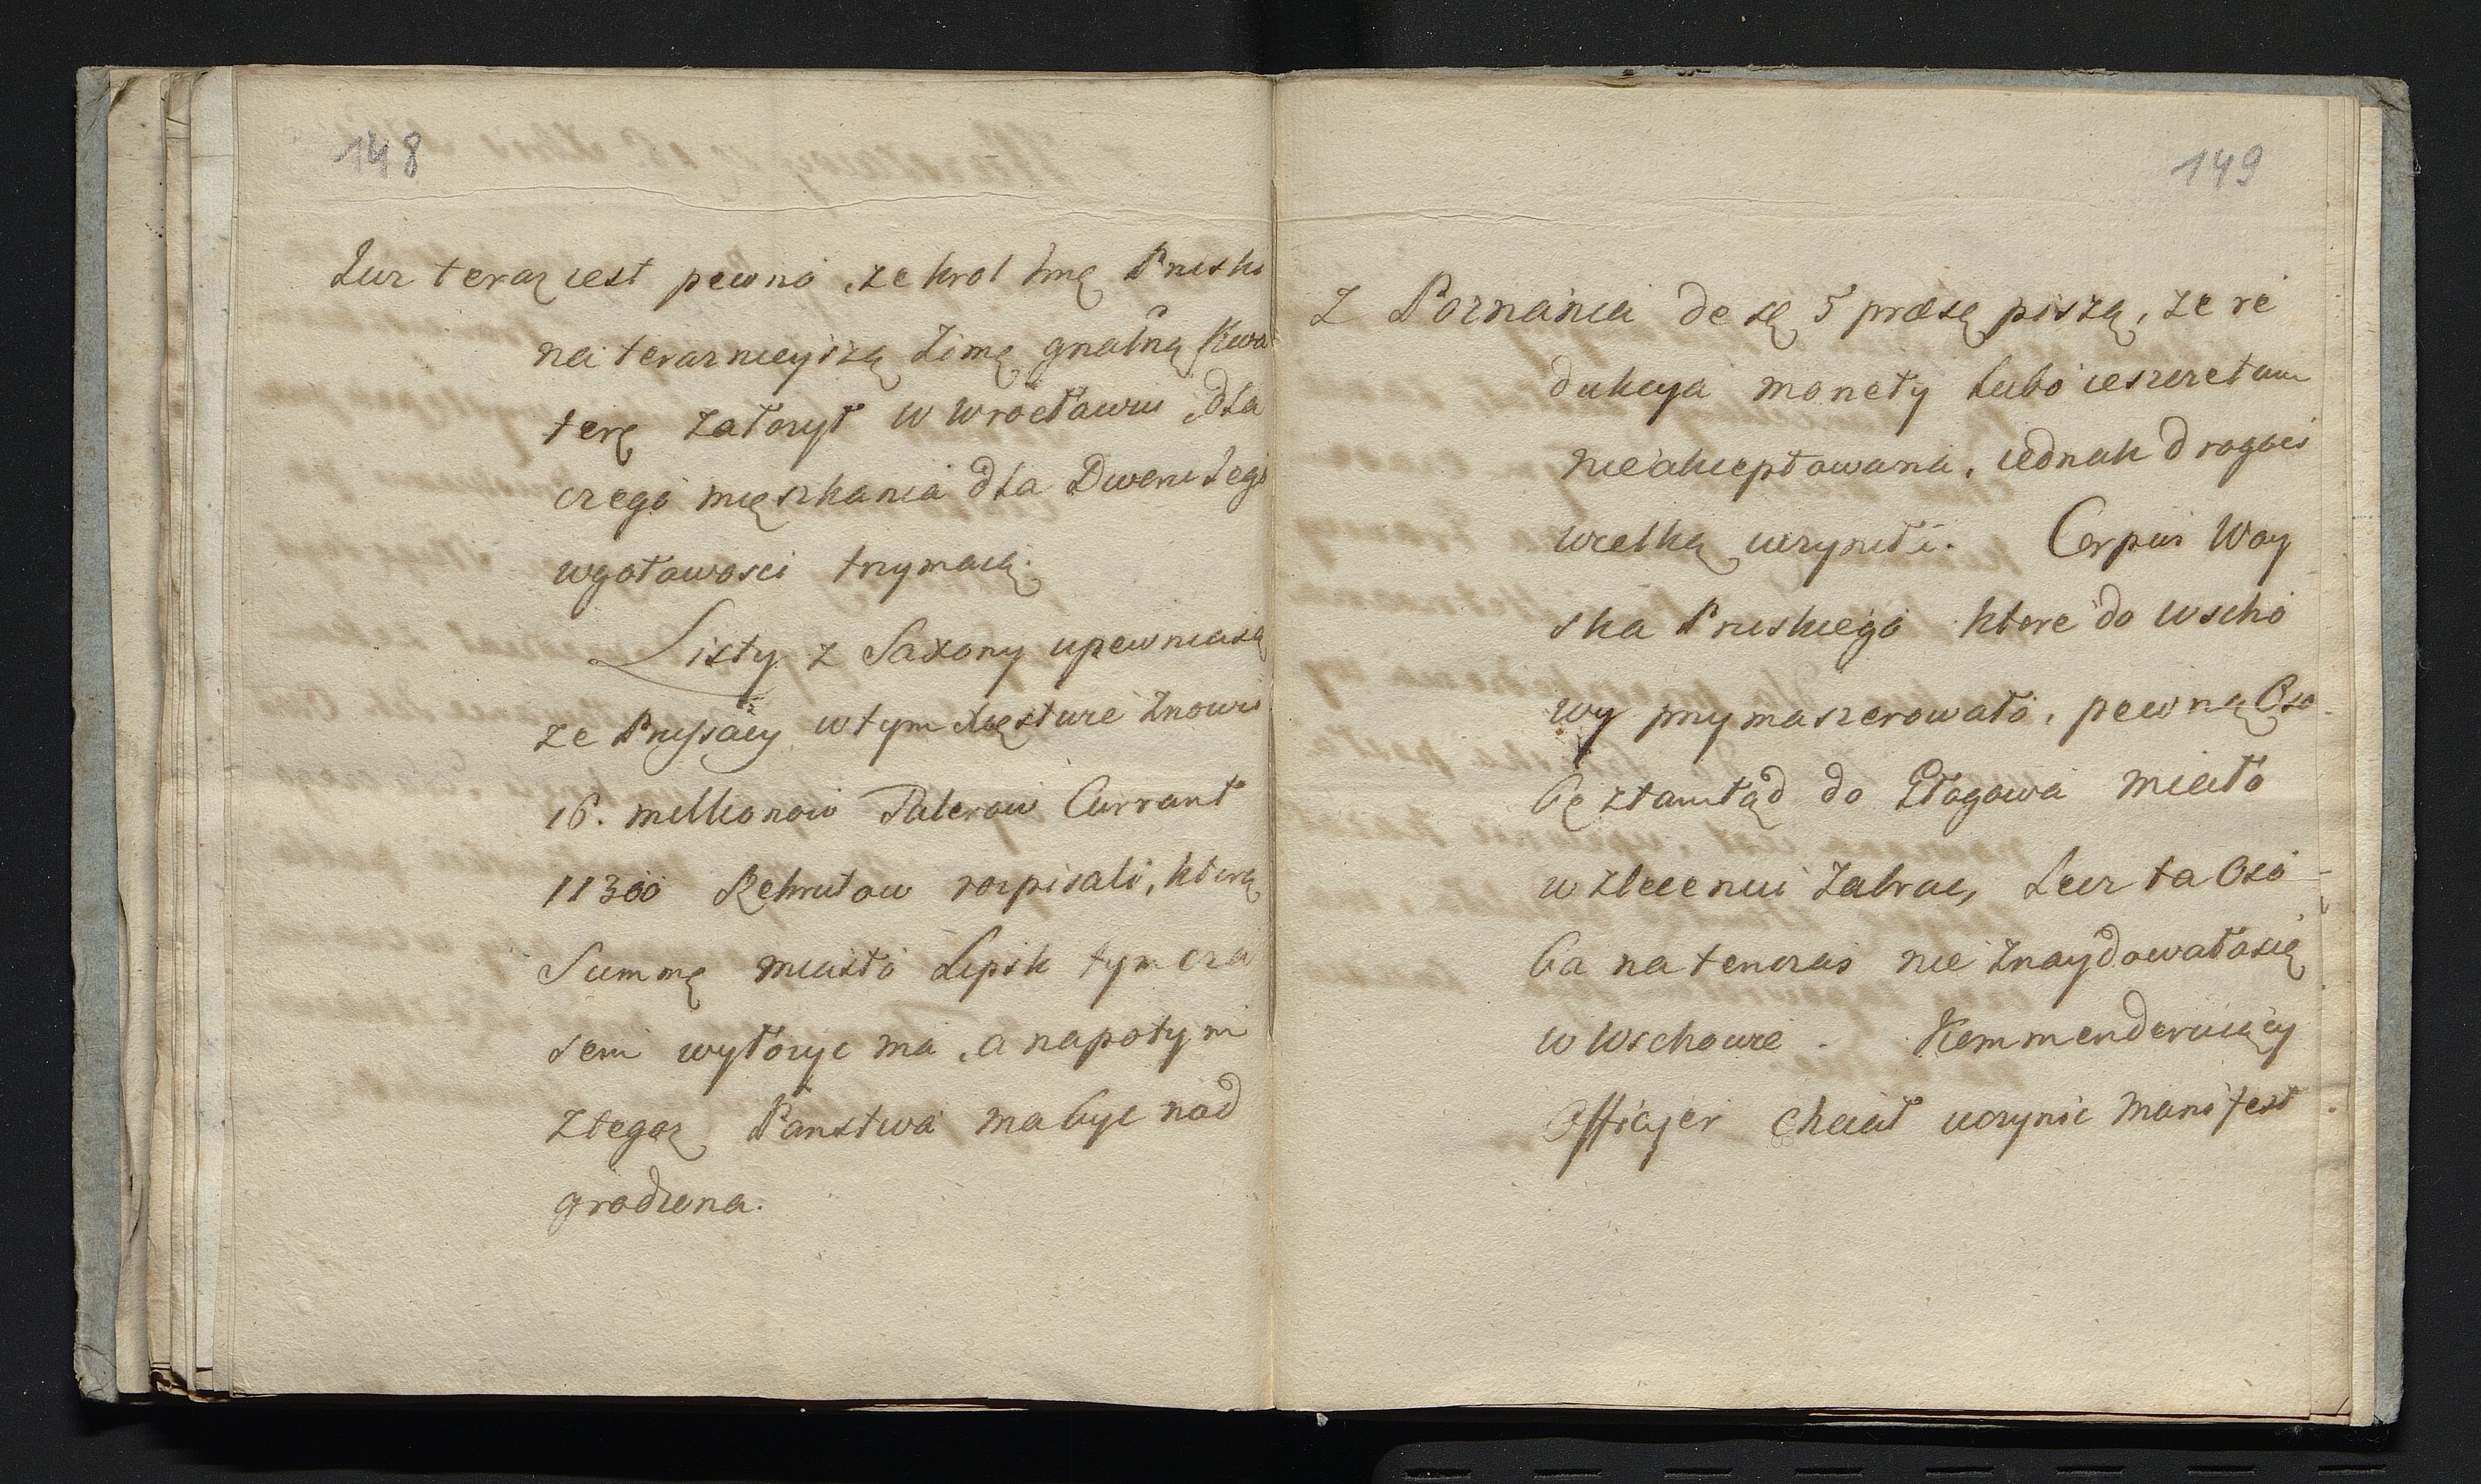 148
Lucz teraz iest pewno, że krol Jmę Pruski
na teraznieyszą Zimę gnalną Kwa
terę założył w Wrocławiu, dla
czego mięszkania dla Dworu Jego
wgotowosci trzymaią.
Listy z Saxony upewniaią
że Prussacy wtym Mięscie Znowu
16. millionow Talerow Currant
11300 Rekrutow rozpisali, którą
Summę miasto Lipsk tym cza
sem wyłożyc ma, a napotym
Ztegoz Panstwa ma byc nad
grodzona.
149
Z Poznania de 5 præs piszą, że re
dukcya monety lubo ieszcze tam
nieakceptowana, iednak drogosc
wielką uczyniła. Corpus Woy
ska Pruskiego ktore do Wscho
wy przymaszerowało, pewną Oso
bę ztamtąd do Głogowa miało
w zleceniu Zabrac, Lecz ta Oso
ba na tenczas nie Znaydowałasię
w Wschowie. Kommenderuiący
Officyer chciał uczynic Manifest